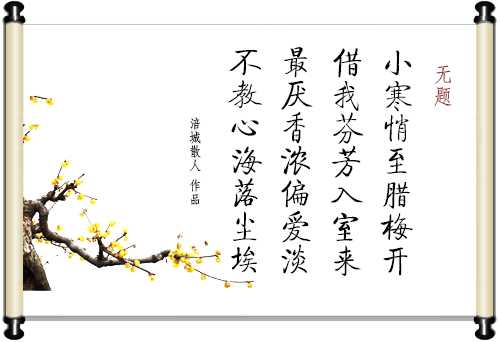 无题
小寒悄至腊梅开
借我芬芳入室来
最厌香浓偏爱淡
不教心海落尘埃
涪城散人 作品